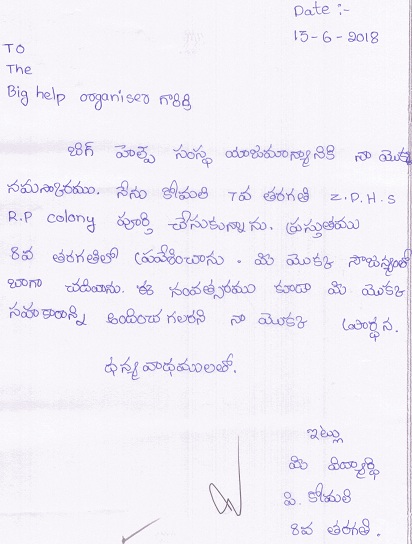 Date :-
15-6-2018
TO
The
Big help organiser గారికి
బిగ్ హెల్ప్ సంస్థ యాజమాన్యానికి నా యొక్క
నమస్కారము. నేను కోమలి 7వ తరగతి Z.P.H.S
R.P colony పూర్తి చేసుకున్నాను. ప్రస్తుతము
8వ తరగతిలో ప్రవేశించాను. మి యొక్క సౌజన్యంతో
బాగా చదివాను. ఈ సంవత్సరము కూడా మి యొక్క
సహకారాన్ని అందించ గలరని నా యొక్క ప్రార్థన.
ధన్యవాధములతో.
ఇట్లు
మి విద్యార్థి
పి. కోమలి
8వ తరగతి.